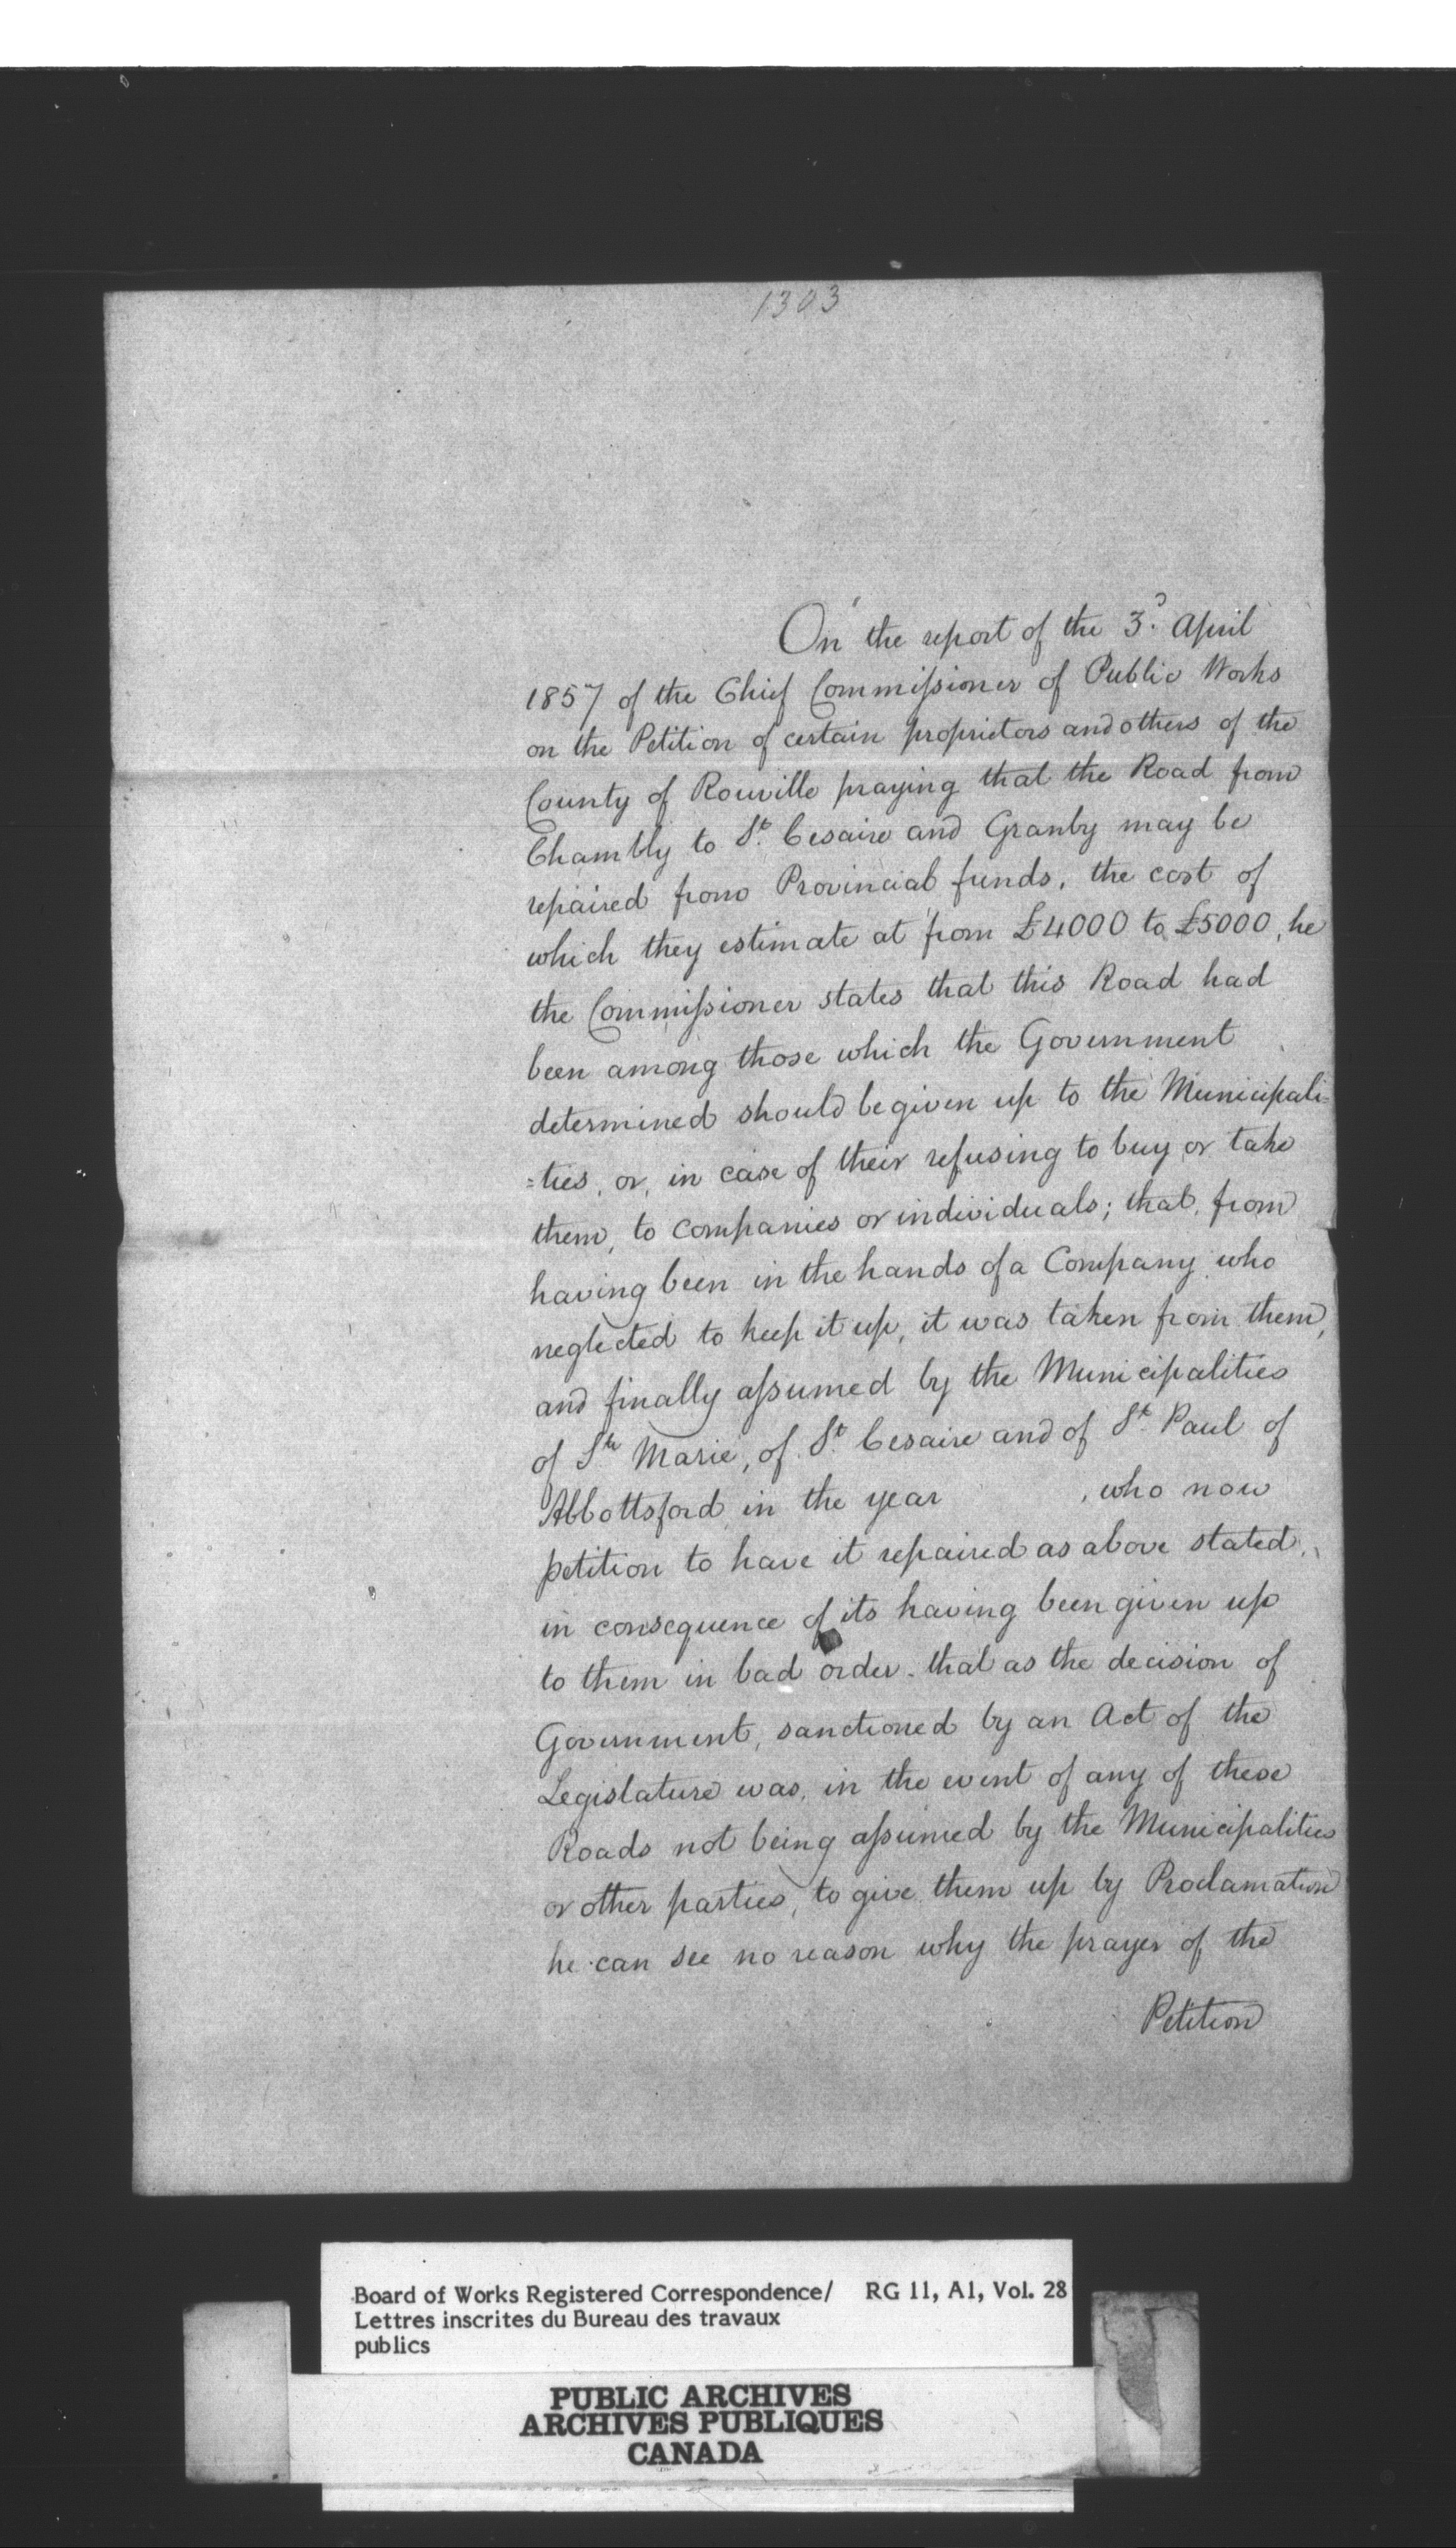 1303
On the report of the 3d. April
1857 of the Chief Commissioner of Public Works
on the Petition of certain proprietors and others of the
County of Rouville praying that the Road from
Chambly to St. Cesaire and Granby may be
repaired from Provincial funds, the cost of
which they estimate at from £4000 to £5000, he
the Commissioner states that this Road had
been among those which the Government
determined should be given up to the Municipali=
=ties, or, in case of their refusing to buy or take
them, to companies or individuals; that, from
having been in the hands of a Company who
neglected to keep it up, it was taken from them,
and finally assumed by the Municipalities
of Ste Marie, of St. Cesaire and of St. Paul of
Abbottsford in the year , who now
petition to have it repaired as above stated,
in consequence of its having been given up
to them in bad order - that as the decision of
Government, sanctioned by an Act of the
Legislature was, in the event of any of these
Roads not being assumed by the Municipalities
or other parties, to give them up by Proclamation
he can see no reason why the prayer of the
Petition
Board of Works Registered Correspondence/ RG 11, A1, Vol. 28
Lettres inscrites du Bureau des travaux
publics
PUBLIC ARCHIVES
ARCHIVES PUBLIQUES
CANADA